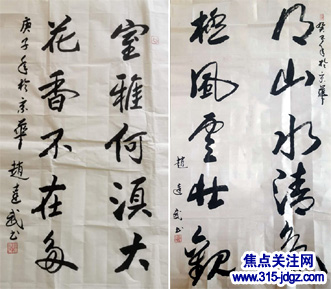 室雅何須大
花香不在多
庚子年於京華
趙達武书
得山水清氣
極風雲壯觀
子年於京華
趙達武书
焦点关注网
www.315-jdgz.com